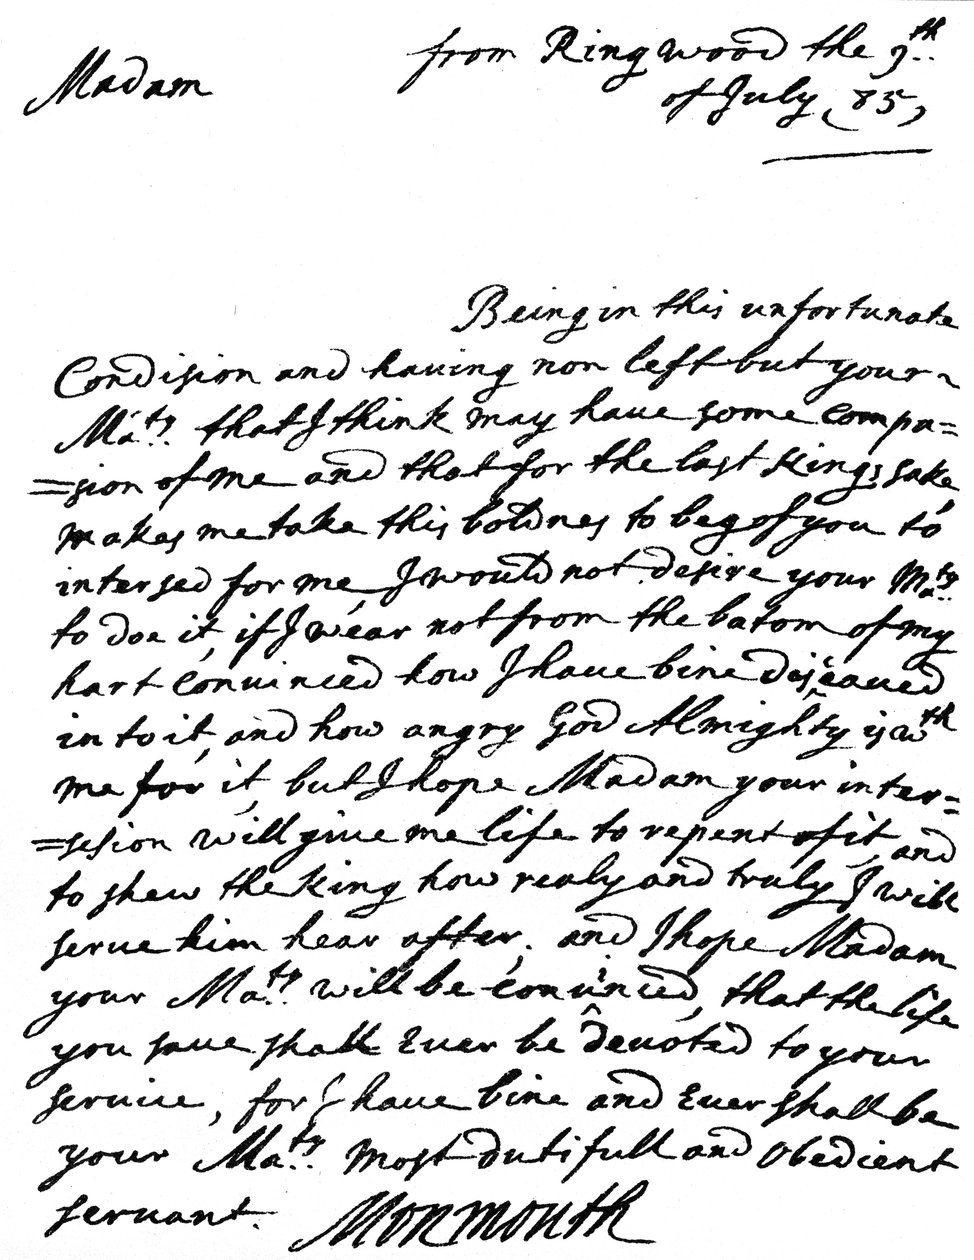 Madam
from Ringwood the 9th
of July (85)
Being in this unfortunate
Condision and having non left but your
Maty. that I think may have some compa=
=sion of me and that for the last Kings sake,
makes me take this boldnes to beg of you to
intersed for me, I would not desire your Maty.
to doe it, if I wear not from the botom of my
hart convinced how I have bine disceaved
in to it, and how angry God Almighty is wth
me for it, but I hope Madam your inter=
=sesion will give me life to repent of it, and
to shew the King how realy and truly I will
serve him hear after, and I hope Madam
your Maty. will be convinced, that the life
you save shall Ever be devoted to your
service, for I have bine and Ever shall be
your Maty. most dutifull and Obedient
servant. Monmouth